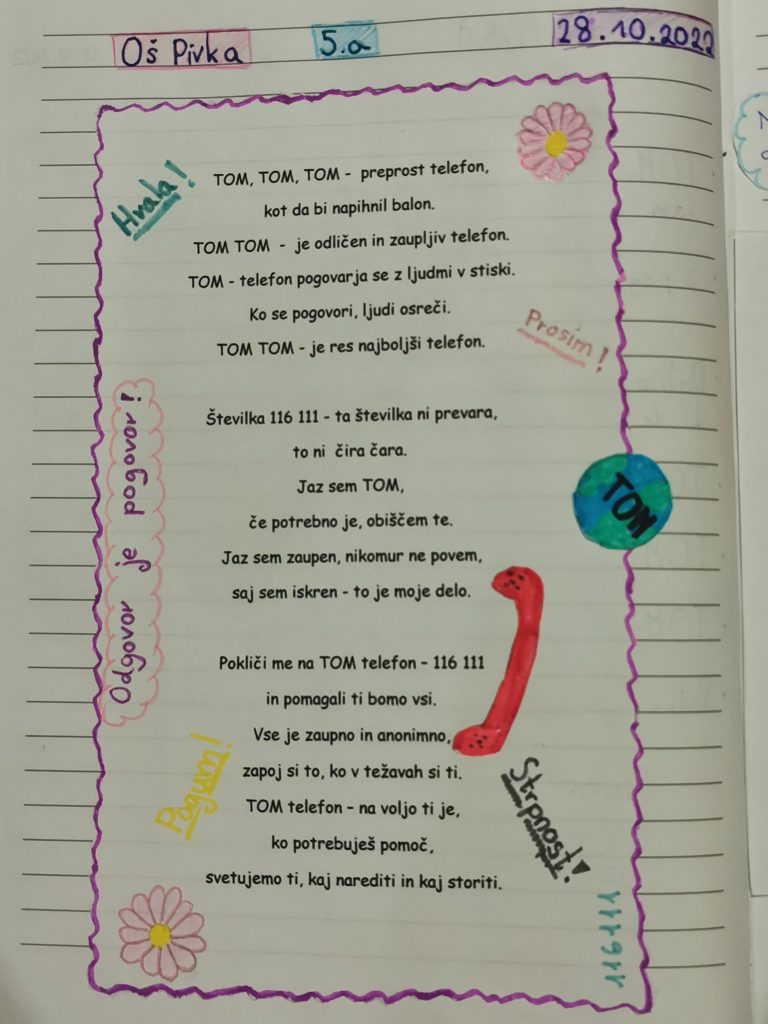 Oš Pivka 5.a 28.10.2022
Hvala!
TOM, TOM, TOM - preprost telefon,
kot da bi napihnil balon.
TOM TOM - je odličen in zaupljiv telefon.
TOM - telefon pogovarja se z ljudmi v stiski.
Ko se pogovori, ljudi osreči.
TOM TOM - je res najboljši telefon.
Prosim!
Številka 116 111 - ta številka ni prevara,
to ni čira čara.
Jaz sem TOM,
če potrebno je, obiščem te.
Jaz sem zaupen, nikomur ne povem,
saj sem iskren - to je moje delo.
Odgovor je pogovor!
TOM
Pokliči me na TOM telefon - 116 111
in pomagali ti bomo vsi.
Vse je zaupno in anonimno,
zapoj si to, ko v težavah si ti.
TOM telefon - na voljo ti je,
ko potrebuješ pomoč,
svetujemo ti, kaj narediti in kaj storiti.
Pogum!
Strpnost!
116111